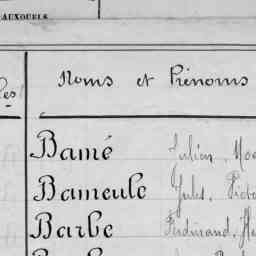 AUXQUELS
Noms et Prénoms
Bamé Julien,
Bameule Jules,
Barbe Ferdinand,